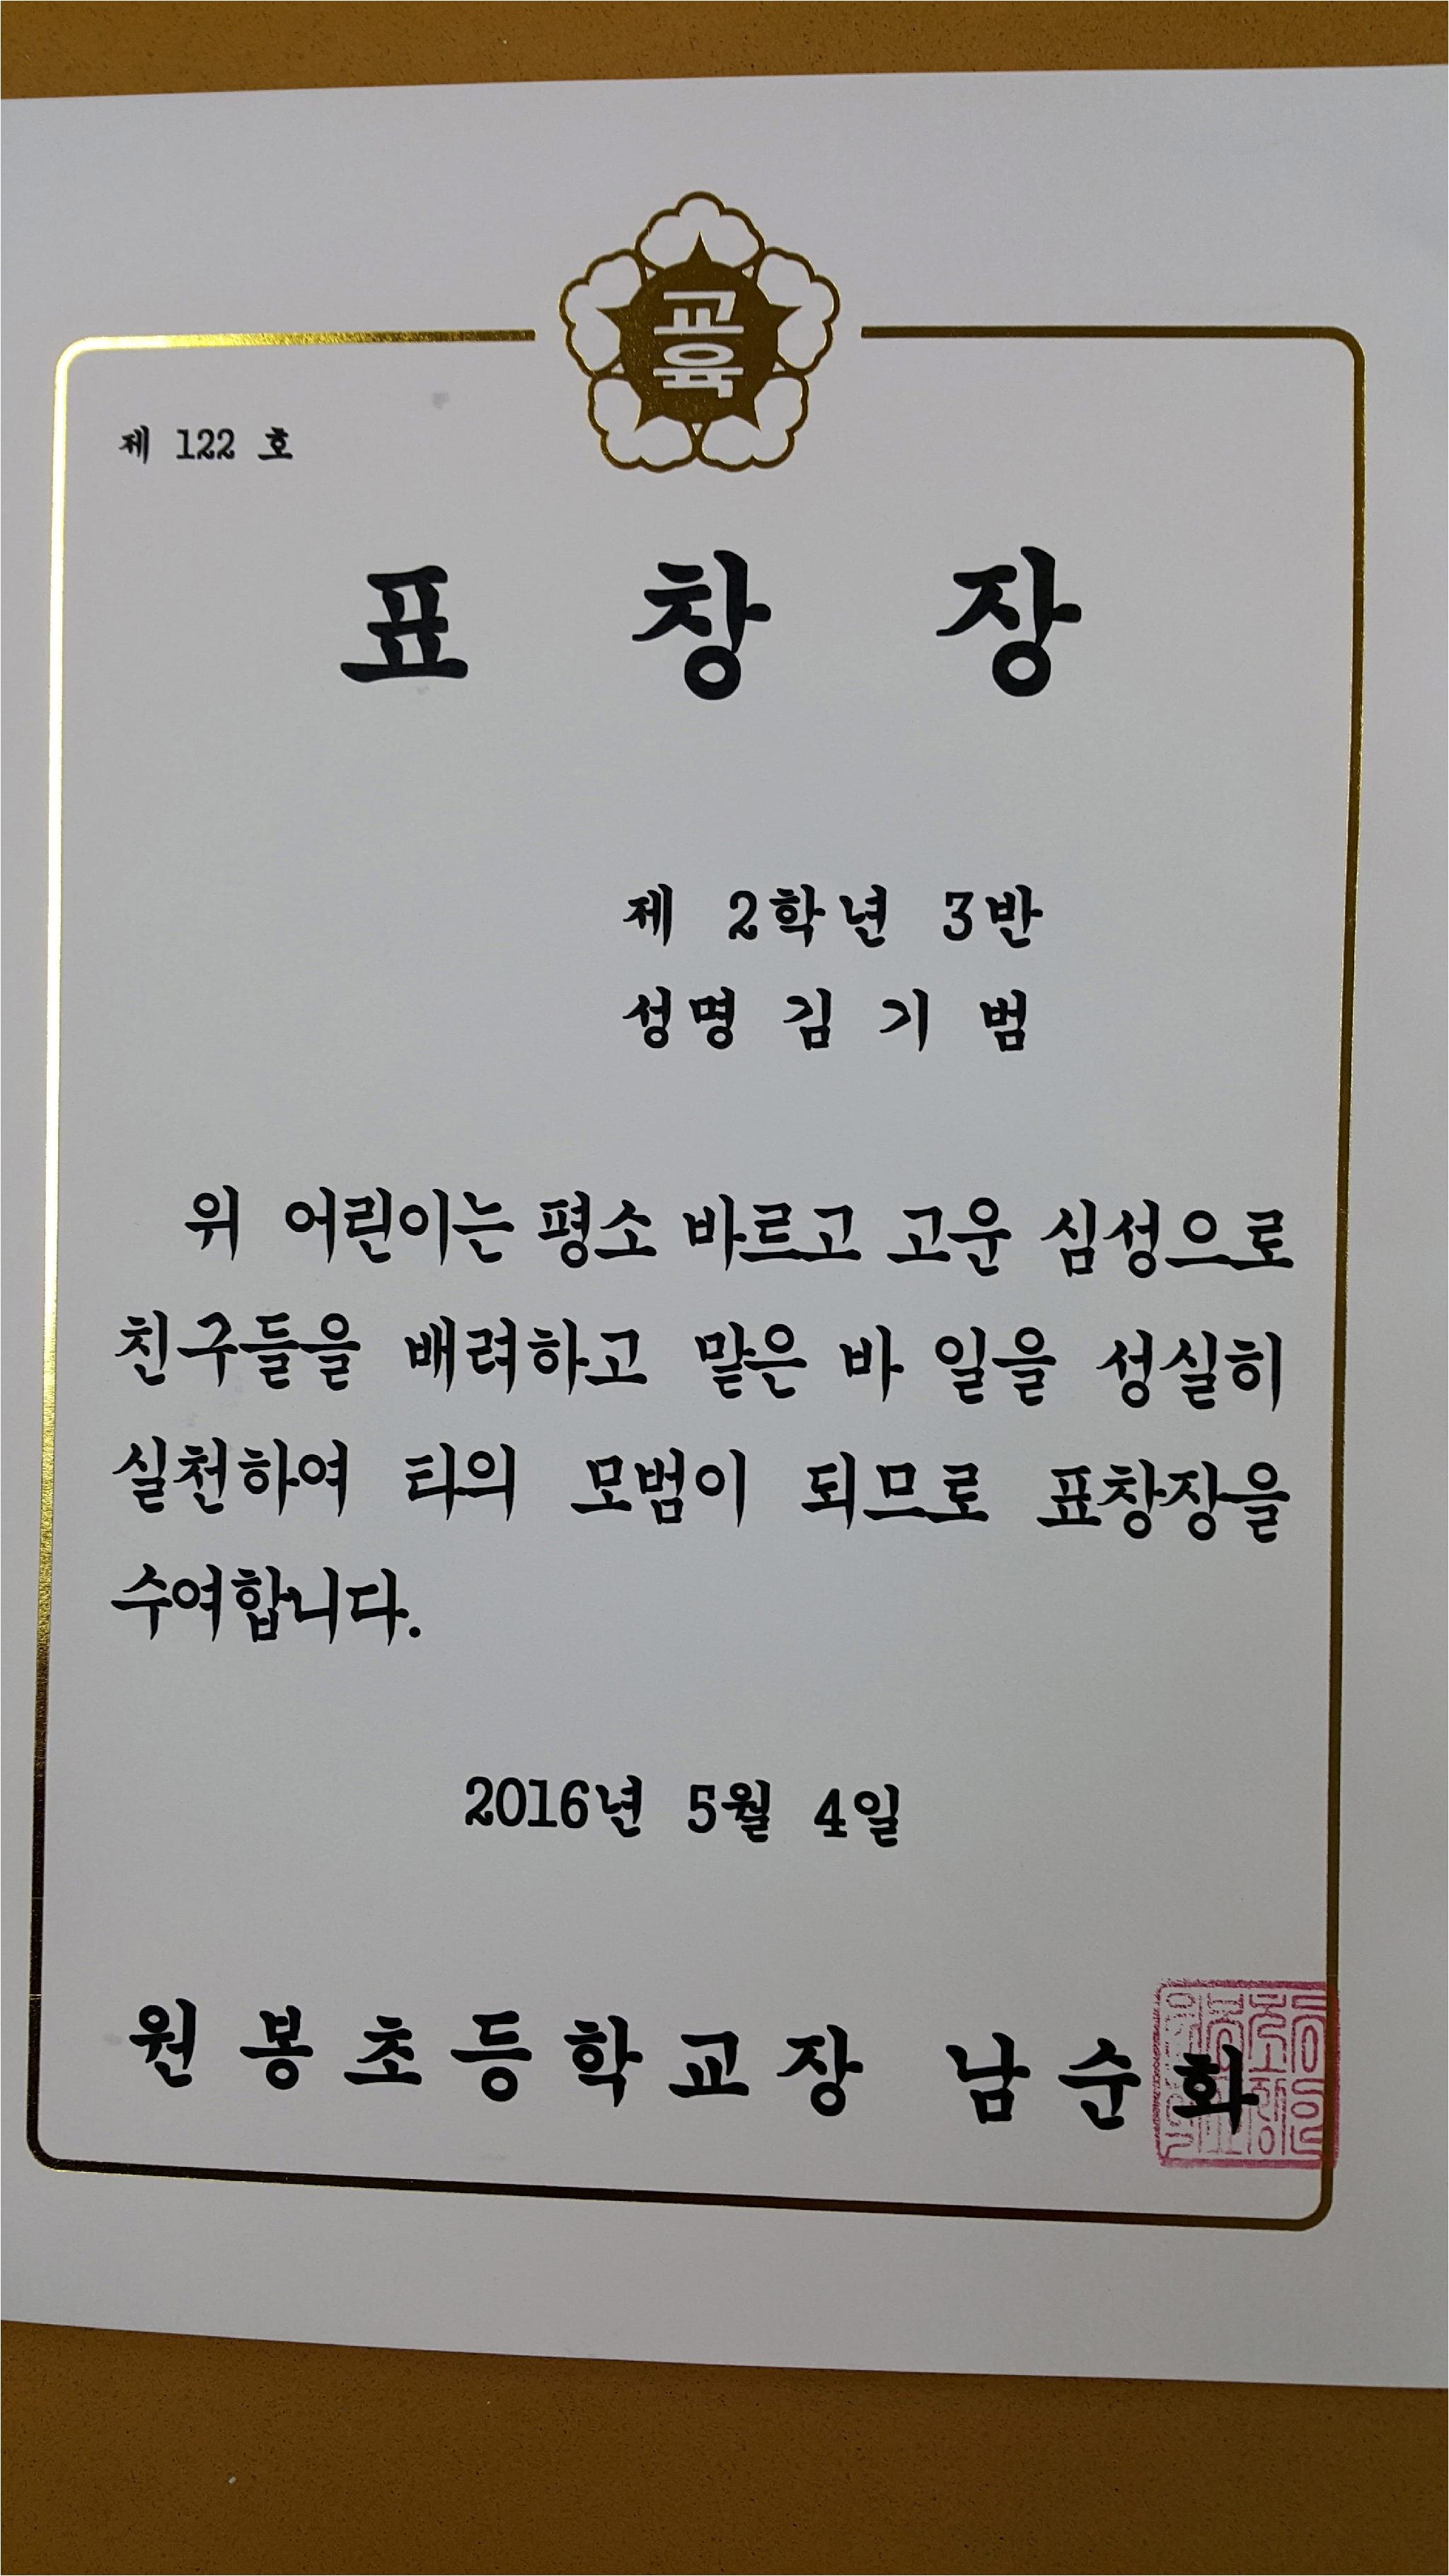 교
육
제 122 호
표 창 장
제 2학년 3반
성명 김 기 범
위 어린이는 평소 바르고 고운 심성으로
친구들을 배려하고 맡은 바 일을 성실히
실천하여 타의 모범이 되므로 표창장을
수여합니다.
2016년 5월 4일
원봉초등학교장 남순화